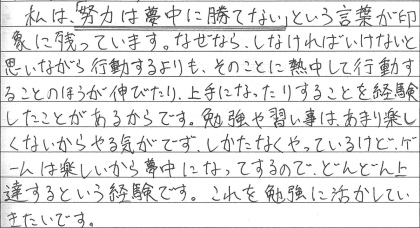 私は、「努力は夢中に勝てない」という言葉が印
象に残っています。なぜなら、しなければいけないと
思いながら行動するよりも、そのことに熱中して行動す
ることのほうが伸びたり、上手になったりすることを経験
したことがあるからです。勉強や習い事は、あまり楽し
くないからやる気がでず、しかたなくやっているけど、ゲ
ームは楽しいから夢中になってするので、どんどん上
達するという経験です。これを勉強に活かしてい
きたいです。